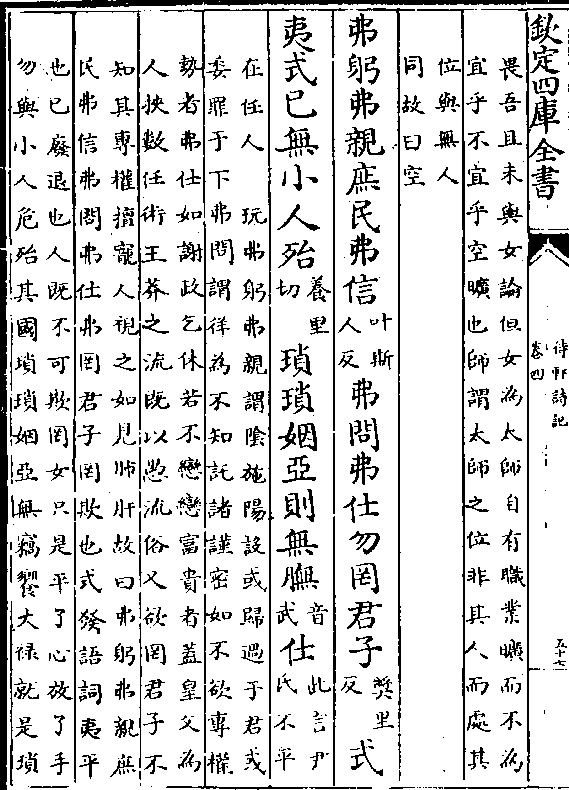 欽定四庫全書
待軒詩記
卷四
五十七
畏吾且未與女論但女為太師自有職業曠而不為
宜乎不宜乎空曠也師謂太師之位非其人而處其
位與無人
同故曰空
弗躬弗親庶民弗信叶斯人反弗問弗仕勿罔君子獎里反式
夷式已無小人殆養里切瑣瑣姻亞則無膴音武仕此言尹氏不平
在任人 玩弗躬弗親謂陰施陽設或歸過于君或
委罪于下弗問謂徉為不知託諸謹密如不欲專權
勢者弗仕如謝政乞休若不戀戀富貴者蓋皇父為
人挾數任術王莽之流既以愚流俗又欲罔君子不
知其專權擅寵人視之如見肺肝故曰弗躬弗親庶
民弗信弗問弗仕弗罔君子罔欺也式發語詞夷平
也已廢退也人既不可欺罔女只是平了心放了手
勿與小人危殆其國瑣瑣姻亞無竊饗大祿就是瑣